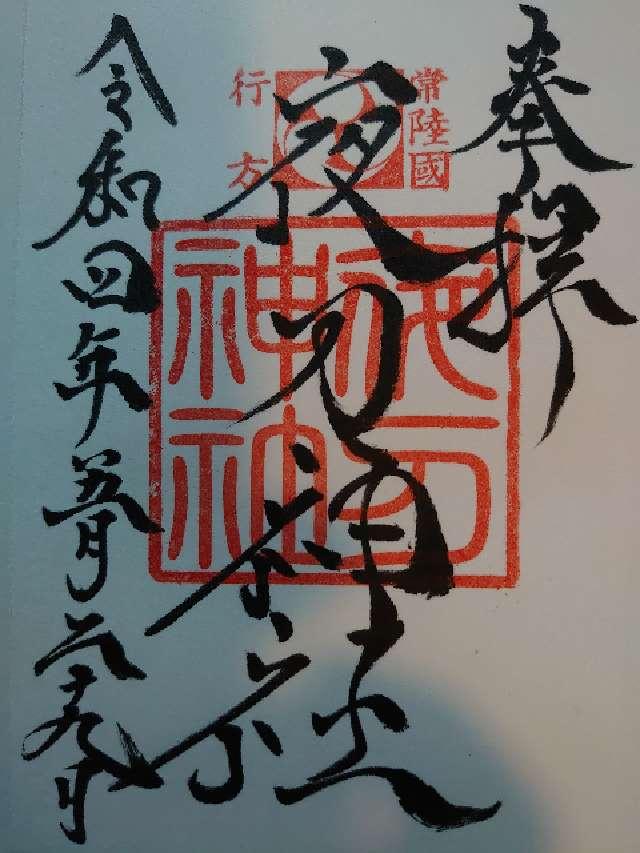 奉拝
常陸國
行方
夜刀神社
夜刀神社
令和四年五月二十九日